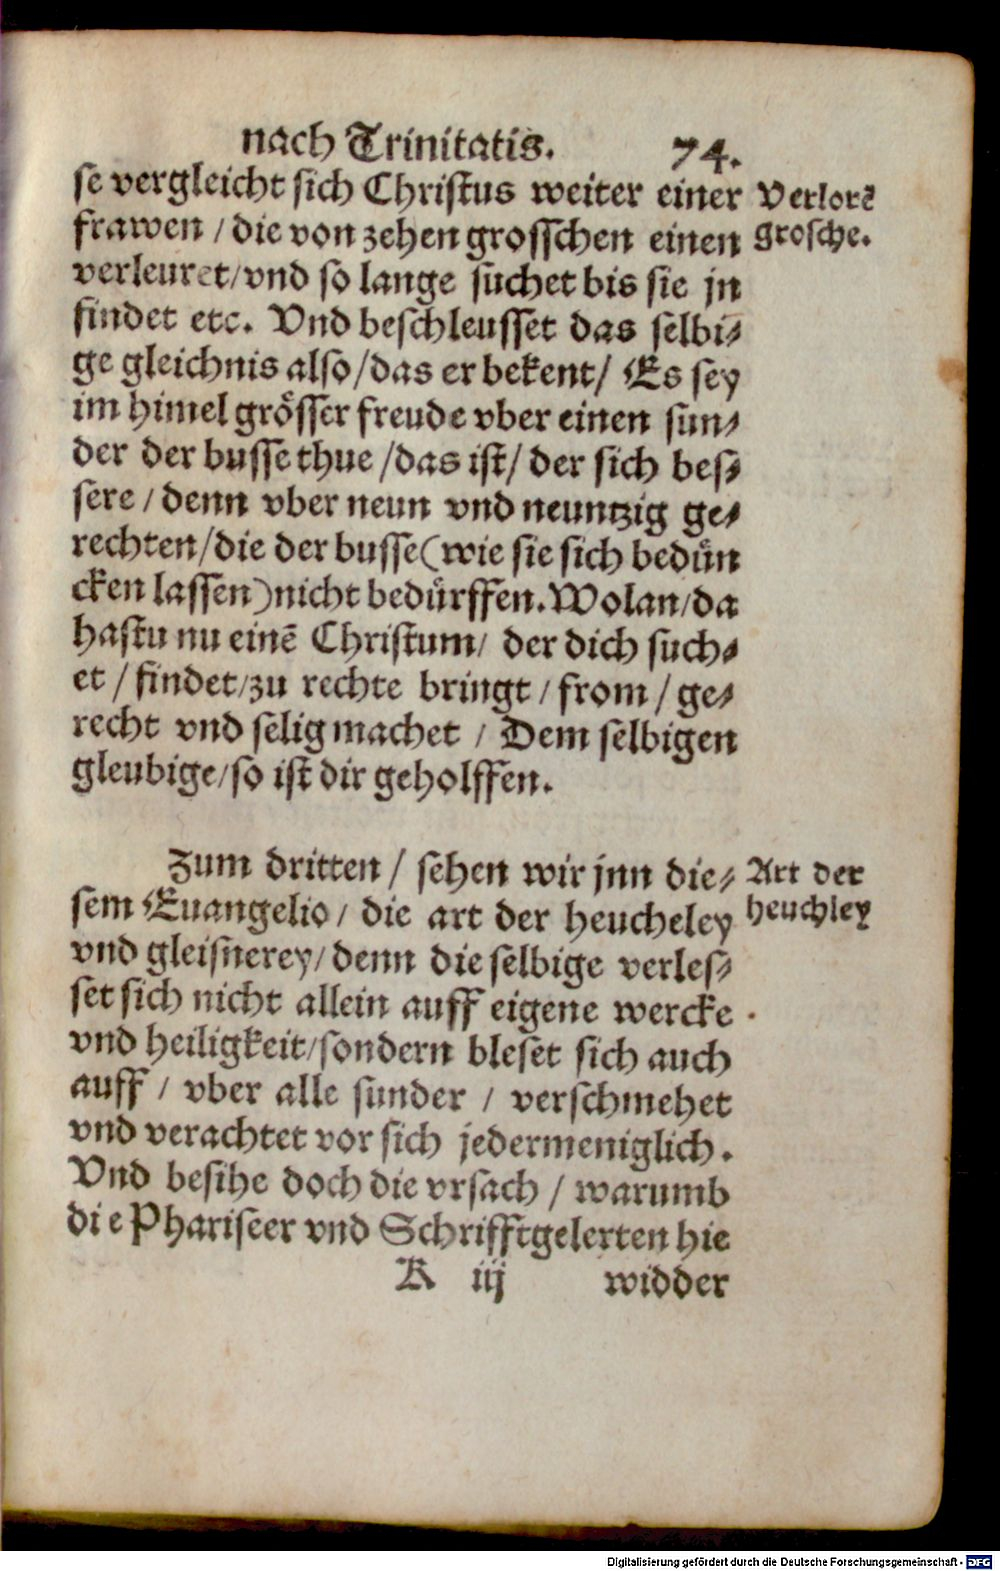 nach Trinitatis. 74.
se vergleicht sich Christus weiter einer
frawen / die von zehen grosschen einen
verleuret/vnd so lange suchet bis sie jn
findet etc. Vnd beschleusset das selbi⸗
ge gleichnis also/das er bekent/ Es sey
im himel grösser freude vber einen sun⸗
der der busse thue /das ist/ der sich bes⸗
sere / denn vber neun vnd neuntzig ge⸗
rechten/die der busse(wie sie sich bedün
cken lassen)nicht bedürffen. Wolan/da
hastu nu einē Christum/ der dich such⸗
et / findet/zu rechte bringt / from / ge⸗
recht vnd selig machet / Dem selbigen
gleubige/so ist dir geholffen.
Verlorē
grosche.
Zum dritten / sehen wir jnn die⸗
sem Euangelio/ die art der heucheley
vnd gleisnerey/denn die selbige verles⸗
set sich nicht allein auff eigene wercke
vnd heiligkeit/sondern bleset sich auch
auff / vber alle sunder / verschmehet
vnd verachtet vor sich jedermeniglich.
Vnd besihe doch die vrsach / warumb
die Phariseer vnd Schrifftgelerten hie
Art der
heuchley
K iij widder
Digitalisierung gefördert durch die Deutsche Forschungsgemeinschaft - DFG